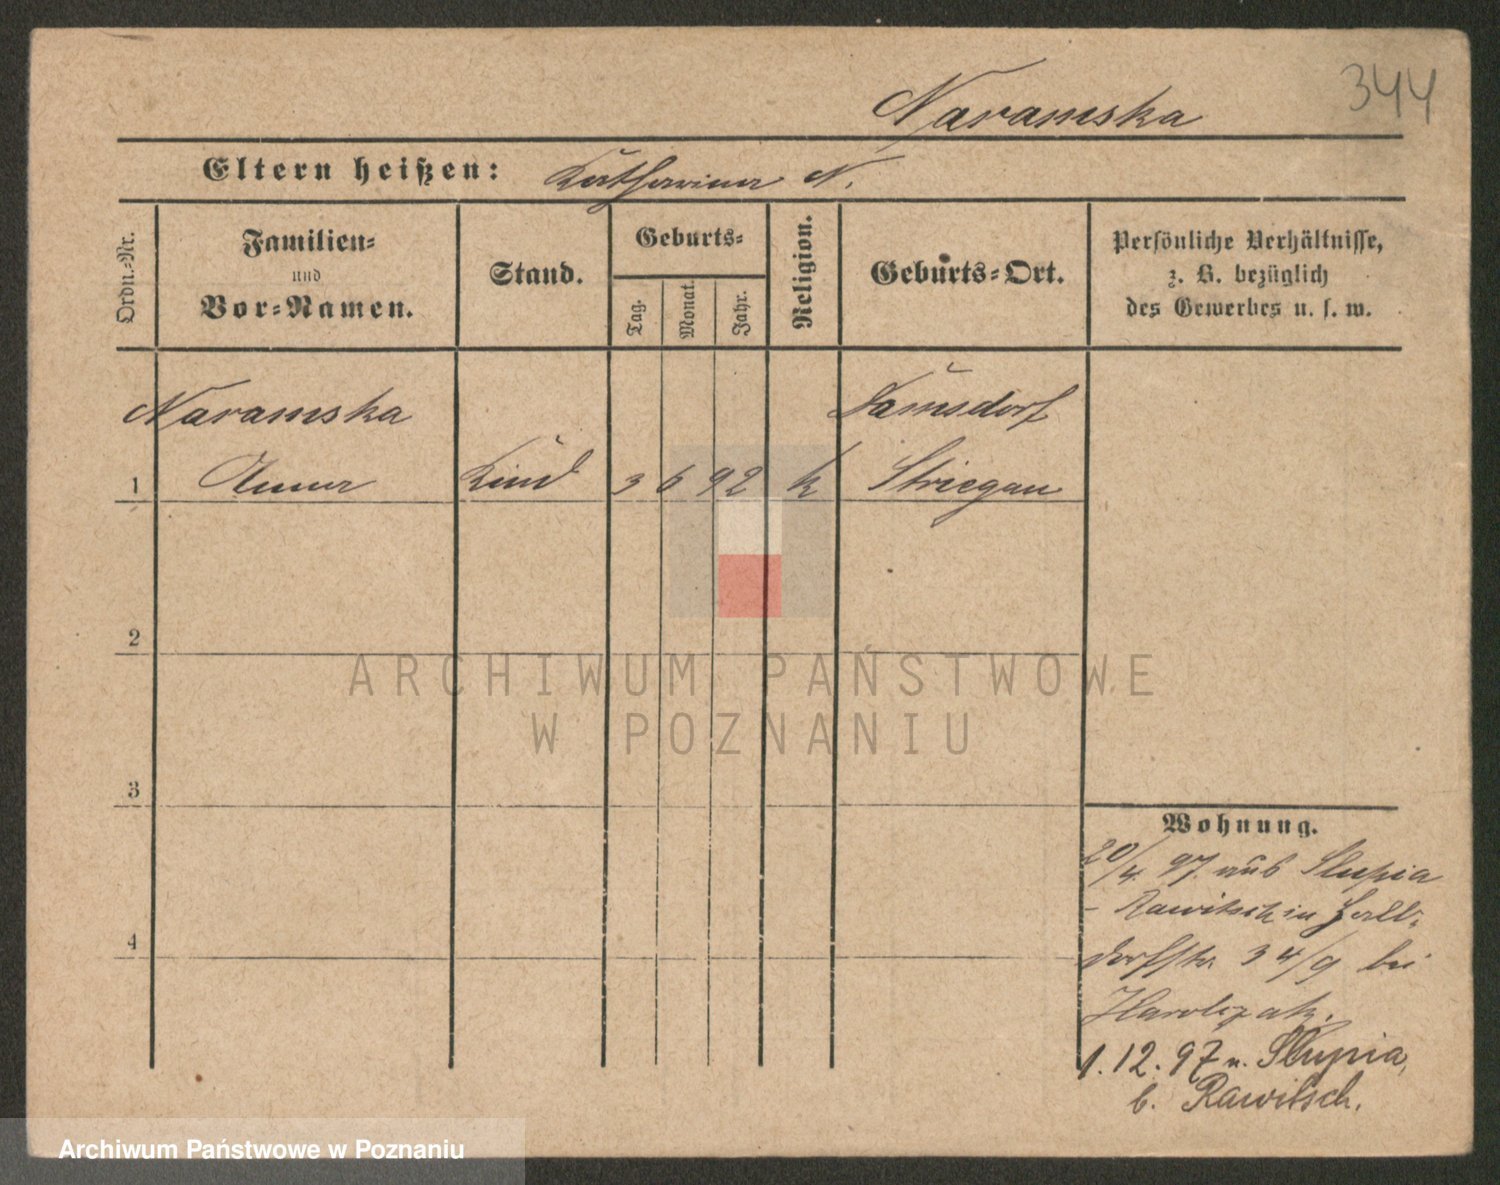 344
Naramska
Eltern heißen: Katharina N.
Ordn.-Nr.
Familien-
und
Vor-Namen.
Stand.
Geburts-
Tag.
Monat.
Jahr.
Religion.
Geburts-Ort.
Persönliche Verhältnisse,
z. B. bezüglich
des Gewerbes u. s. w.
Naramska
1 Anna Kind 3 6 92 k Striegau
2
3
4
Wohnung.
20/4. 97 aus Slupia
- Rawitsch in
34/9 bei
1. 12. 97 n. Slupia,
b. Rawitsch.
ARCHIWUM PAŃSTWOWE
W POZNANIU
Archiwum Państwowe w Poznaniu